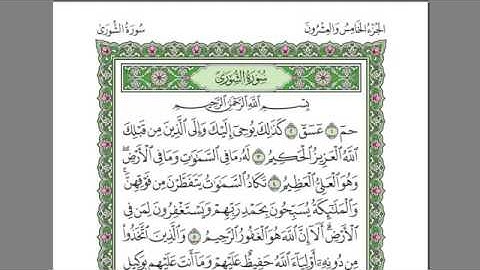 الجزء الخامس والعشرون
سورة الشورى
سُورَةُ الشُّورَىٰ
بِسْمِ اللَّهِ الرَّحْمَٰنِ الرَّحِيمِ
حمٓ ١ عٓسٓقٓ ٢ كَذَٰلِكَ يُوحِيٓ إِلَيْكَ وَإِلَى ٱلَّذِينَ مِن قَبْلِكَ
ٱللَّهُ ٱلْعَزِيزُ ٱلْحَكِيمُ ٣ لَهُۥ مَا فِى ٱلسَّمَٰوَٰتِ وَمَا فِى ٱلْأَرْضِ
وَهُوَ ٱلْعَلِىُّ ٱلْعَظِيمُ ٤ تَكَادُ ٱلسَّمَٰوَٰتُ يَتَفَطَّرْنَ مِن فَوْقِهِنَّ
وَٱلْمَلَٰٓئِكَةُ يُسَبِّحُونَ بِحَمْدِ رَبِّهِمْ وَيَسْتَغْفِرُونَ لِمَن فِى
ٱلْأَرْضِ أَلَآ إِنَّ ٱللَّهَ هُوَ ٱلْغَفُورُ ٱلرَّحِيمُ ٥ وَٱلَّذِينَ ٱتَّخَذُوا۟
مِن دُونِهِۦٓ أَوْلِيَآءَ ٱللَّهُ حَفِيظٌ عَلَيْهِمْ وَمَآ أَنتَ عَلَيْهِم بِوَكِيلٍ